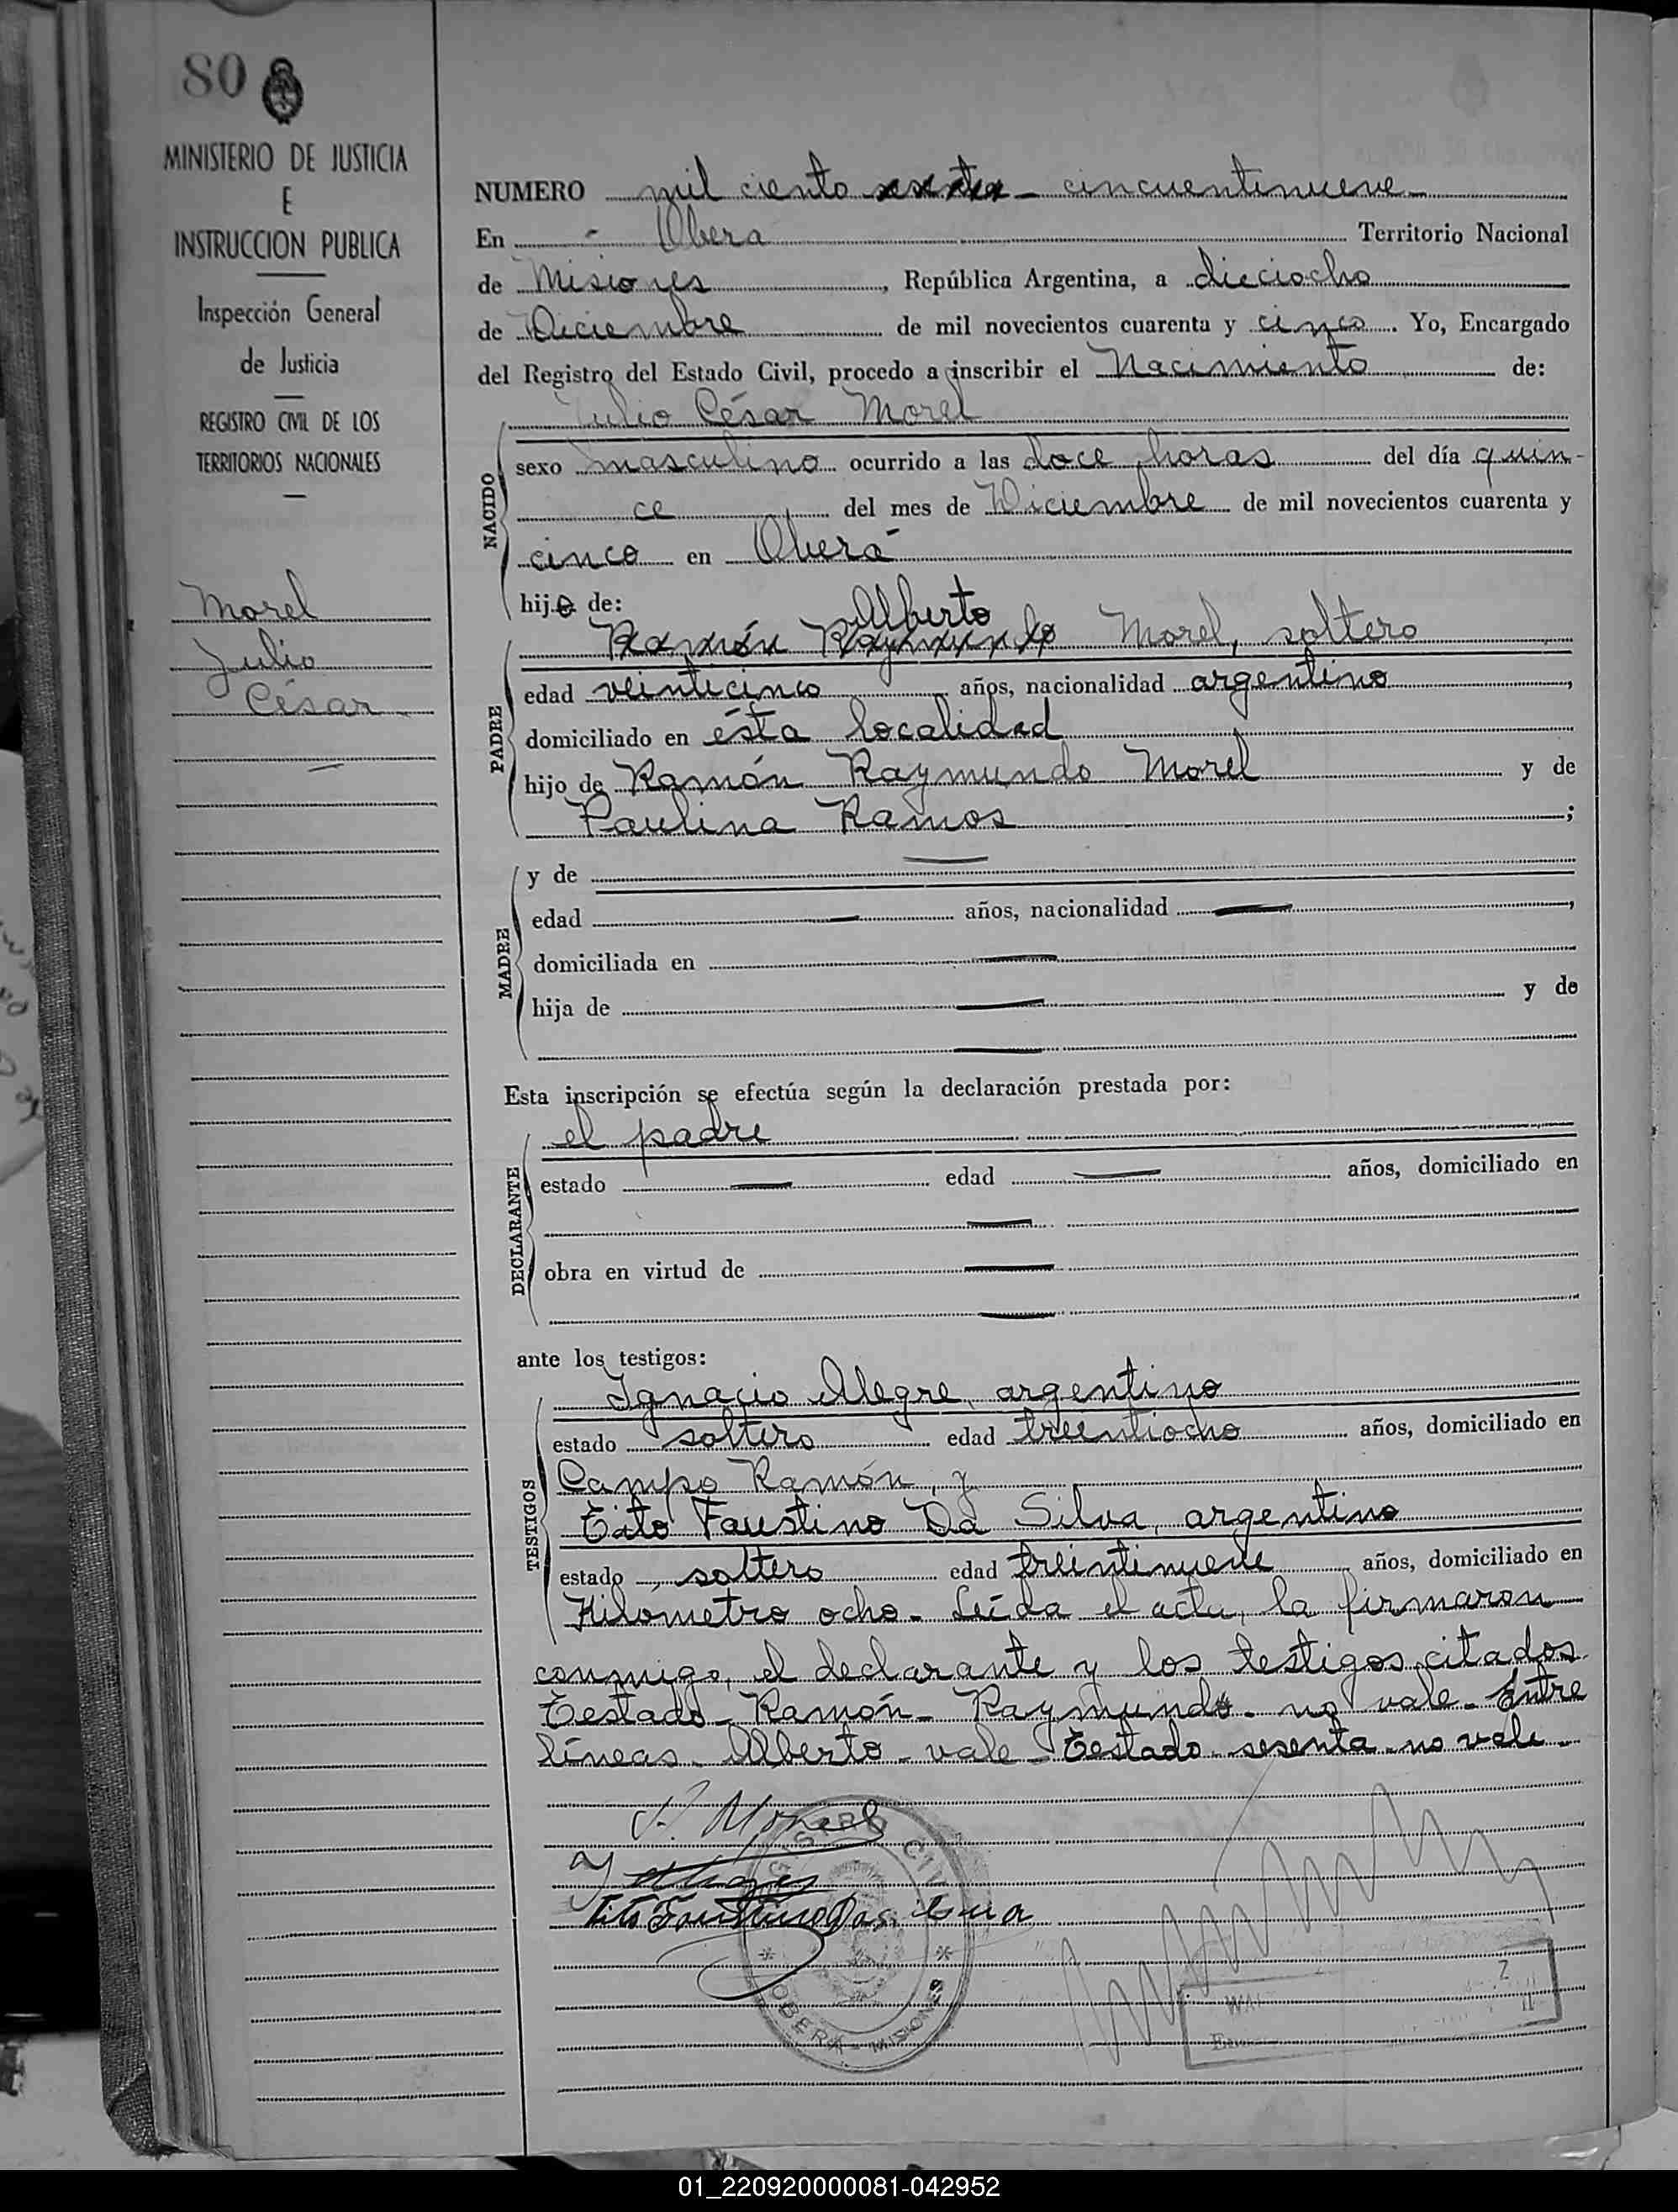 80
MINISTERIO DE JUSTICIA
E
INSTRUCCION PUBLICA
Inspección General
de Justicia
REGISTRO CIVIL DE LOS
TERRITORIOS NACIONALES
Morel
Julio
César
NUMERO mil ciento sesenta - cincuentinueve
En Obera Territorio Nacional
de Misiones, República Argentina, a dieciocho
de Diciembre de mil novecientos cuarenta y cinco. Yo, Encargado
del Registro del Estado Civil, procedo a inscribir el Nacimiento de:
Julio César Morel
NACIDO
sexo masculino ocurrido a las doce horas del día quin-
ce del mes de Diciembre de mil novecientos cuarenta y
cinco en Oberá
hijo de:
Alberto
Ramón Raymundo Morel, soltero
PADRE
edad veinticinco años, nacionalidad argentino,
domiciliado en ésta localidad
hijo de Ramón Raymundo Morel y de
Paulina Ramos;
MADRE
y de
edad años, nacionalidad,
domiciliada en
hija de y de
Esta inscripción se efectúa según la declaración prestada por:
el padre
DECLARANTE
estado edad años, domiciliado en
obra en virtud de
ante los testigos:
Ignacio Alegre, argentino
TESTIGOS
estado soltero edad treentiocho años, domiciliado en
Campo Ramón, y
Tito Faustino Da Silva, argentino
estado soltero edad treintinueve años, domiciliado en
Kilómetro ocho. Leída el acta, la firmaron
conmigo, el declarante y los testigos citados.
Testado - Ramón - Raymundo - no vale - Entre
líneas - Alberto - vale - Testado - sesenta - no vale -
Morel
Tito Faustino Da Silva
OBERA - MISIONES
01_220920000081-042952